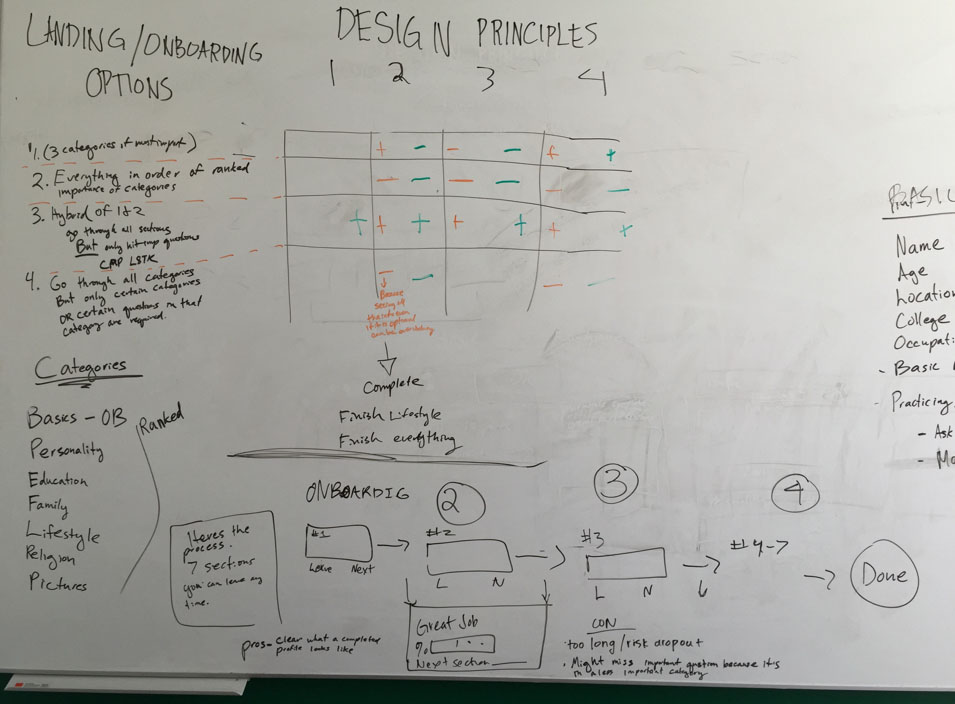 LANDING/ONBOARDING
OPTIONS
DESIGN PRINCIPLES
1 2 3 4
1. (3 categories, if most import)
2. Everything in order of ranked
importance of categories
3. Hybrid of 1&2
go through all sections
But only hit imp questions
4. Go through all categories
But only certain categories
OR certain questions in that
category are required.
+ − − − + +
− − − − − −
+ + + + + + +
− − − −
Because
Complete
Finish Lifestyle
Finish everything
Categories
Basics - OB
Personality
Education
Family
Lifestyle
Religion
Pictures
Ranked
ONBOARDIG
2
3
4
Heres the
process.
7 sections
you can leave any
time.
#1
Leave Next
#2
L N
#3
L N
#4
Done
Great Job
%
Next section
pros- Clear what a completed
profile looks like
CON
too long/risk dropout
Might miss important question because it's
in a less important category
BASIC
Name
Age
Location
College
Occupati
- Basic
- Practicing
- Ask
- Mo